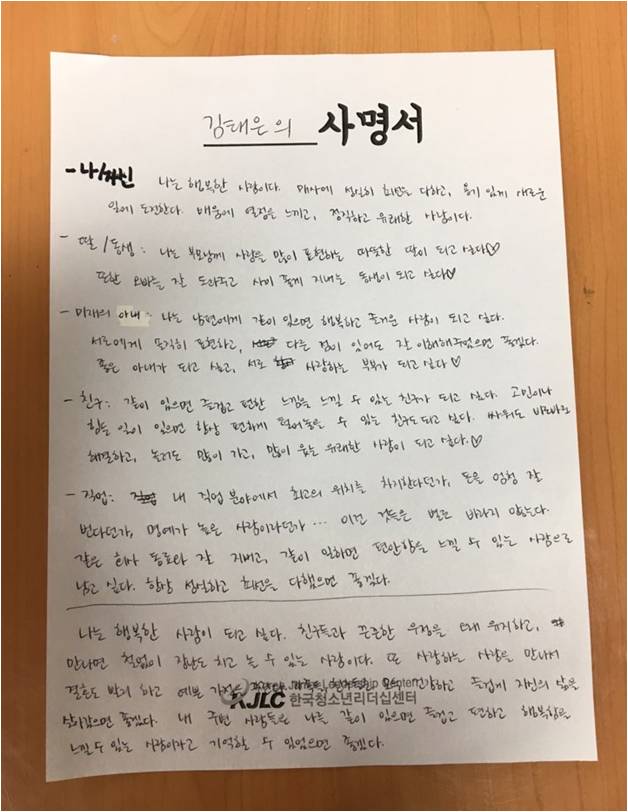 김태은의 사명서
- 나/자신 나는 행복한 사람이다. 매사에 성실히 최선을 다하고, 용기 있게 새로운
일에 도전한다. 배움에 열정을 느끼고, 정직하고 유쾌한 사람이다.
- 딸/동생 : 나는 부모님께 사랑을 많이 표현하는 따뜻한 딸이 되고 싶다♡
또한 오빠를 잘 도와주고 사이 좋게 지내는 동생이 되고 싶다♡
- 미래의 아내 : 나는 남편에게 같이 있으면 행복하고 즐거운 사람이 되고 싶다.
서로에게 솔직히 표현하고, 다른 점이 있어도 잘 이해해주었으면 좋겠다.
좋은 아내가 되고 싶고, 서로 사랑하는 부부가 되고 싶다♡
- 친구 : 같이 있으면 즐겁고 편한 느낌을 느낄 수 있는 친구가 되고 싶다. 고민이나
힘든 일이 있으면 항상 편하게 털어놓을 수 있는 친구도 되고 싶다. 싸워도 바로바로
해결하고, 놀러도 많이 가고, 많이 웃는 유쾌한 사람이 되고 싶다.♡
- 직업 : 내 직업 분야에서 최고의 위치를 차지한다던가, 돈을 엄청 잘
번다던가, 명예가 높은 사람이라던가 … 이런 것들은 별로 바라지 않는다.
같은 회사 동료와 잘 지내고, 같이 일하면 편안함을 느낄 수 있는 사람으로
남고 싶다. 항상 성실하고 최선을 다했으면 좋겠다.
나는 행복한 사람이 되고 싶다. 친구들과 꾸준한 우정을 오래 유지하고,
만나면 철없이 장난도 치고 놀 수 있는 사람이다. 또 사랑하는 사람을 만나서
결혼도 하고 예쁜 건강하고 즐겁게 자신의 삶을
살아갔으면 좋겠다. 내 주변 사람들은 나를 같이 있으면 즐겁고 편하고 행복함을
느낄 수 있는 사람이라고 기억할 수 있었으면 좋겠다.
KJLC 한국청소년리더십센터